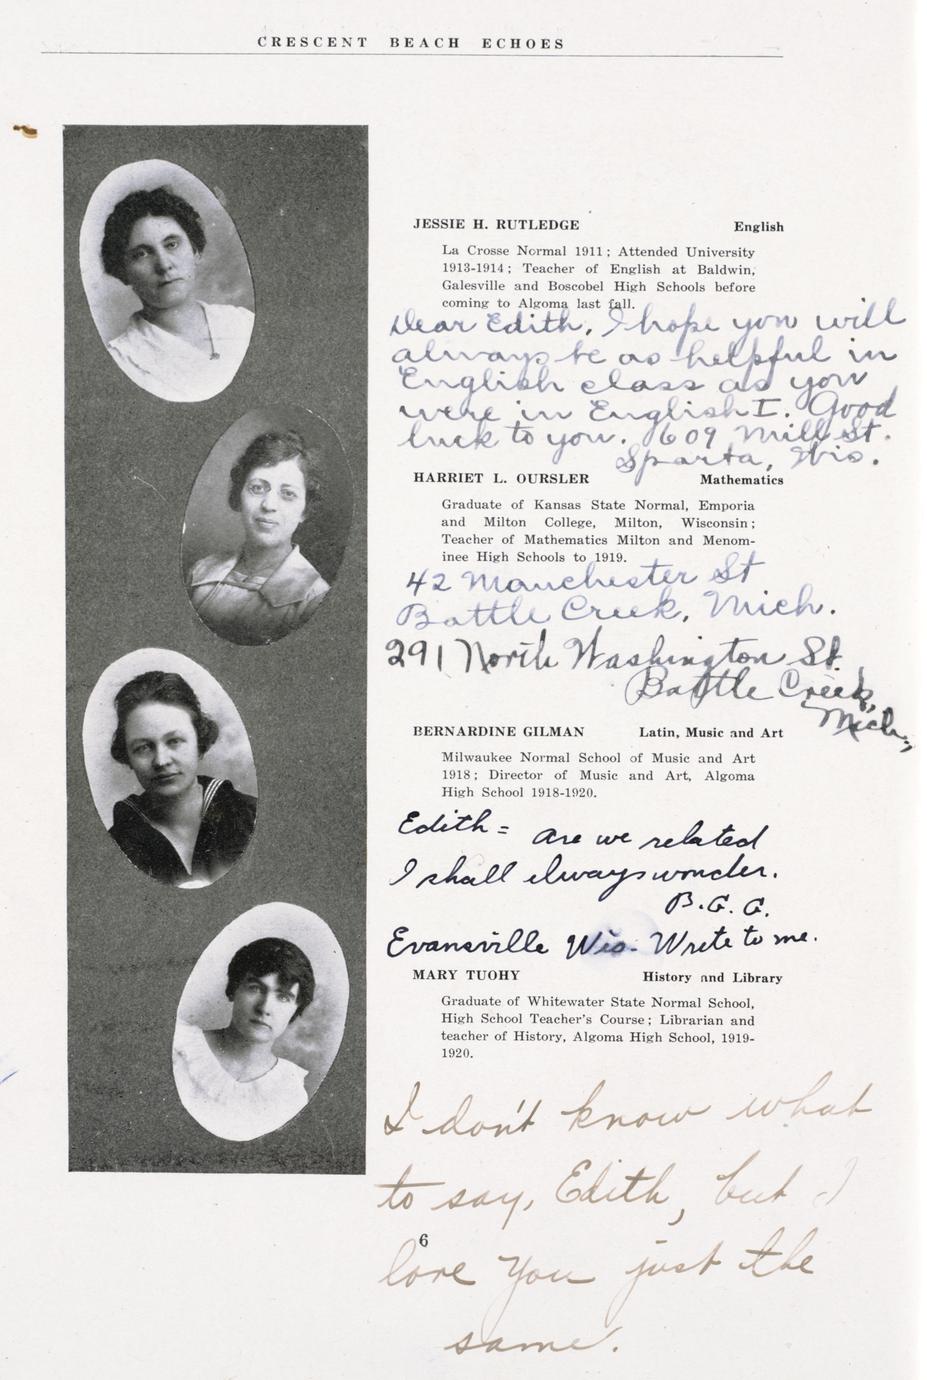 CRESCENT BEACH ECHOES
JESSIE H. RUTLEDGE English
La Crosse Normal 1911; Attended University
1913-1914; Teacher of English at Baldwin,
Galesville and Boscobel High Schools before
coming to Algoma last fall.
Dear Edith, I hope you will
always be as helpful in
English class as you
were in English I. Good
luck to you. 609 Mill St.
Sparta, Wis.
HARRIET L. OURSLER Mathematics
Graduate of Kansas State Normal, Emporia
and Milton College, Milton, Wisconsin;
Teacher of Mathematics Milton and Menom-
inee High Schools to 1919.
42 Manchester St
Battle Creek, Mich.
291 North Washington St.
Battle Creek,
Mich.,
BERNARDINE GILMAN Latin, Music and Art
Milwaukee Normal School of Music and Art
1918; Director of Music and Art, Algoma
High School 1918-1920.
Edith = are we related
I shall always wonder.
B.G.G.
Evansville Wis. Write to me.
MARY TUOHY History and Library
Graduate of Whitewater State Normal School,
High School Teacher's Course; Librarian and
teacher of History, Algoma High School, 1919-
1920.
I don't know what
to say, Edith, but I
6
love you just the
same.